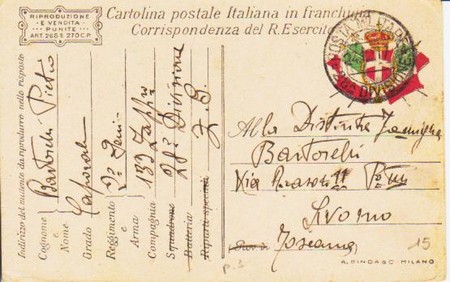 RIPRODUZIONE
E VENDITA
PUNITE
ART. 268 E 270 C.P.
Cartolina postale Italiana in franchigia
Corrispondenza del R. Esercito
POSTA MILITARE
28ª DIVISIONE
Indirizzo del mittente da riprodurre nelle risposte
Cognome e Nome Bartorelli Pietro
Grado Caporale
Reggimento e Arma 2º Genio
Compagnia 189 Zapp.
Squadrone 28ª Divisione
Batteria Z. G.
Reparti speciali
Alla Distinta Famiglia
Bartorelli
Via
Livorno
Prov. di Toscana
15
p. 3
A. SINDASC. MILANO